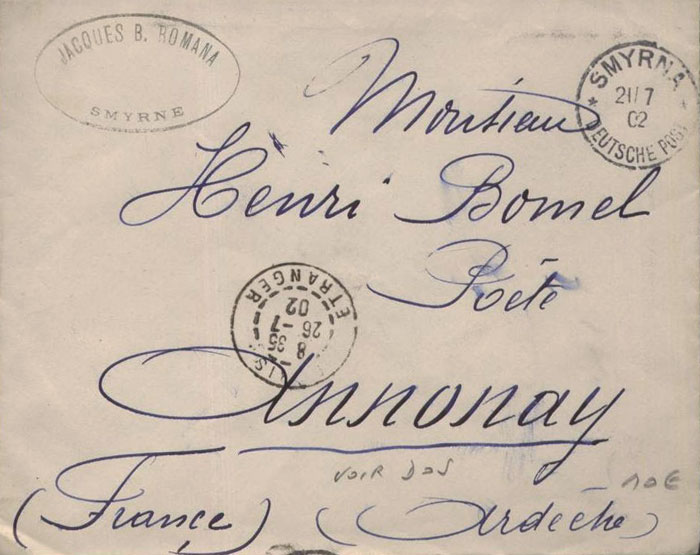 JACQUES B. ROMANA
SMYRNE
SMYRNA
21/7
02
DEUTSCHE POST
Monsieur
Henri Bomel
Poëte
ETRANGER
8 35
26 -7
02
Annonay
VOIR DOS
10€
(France) (Ardèche)